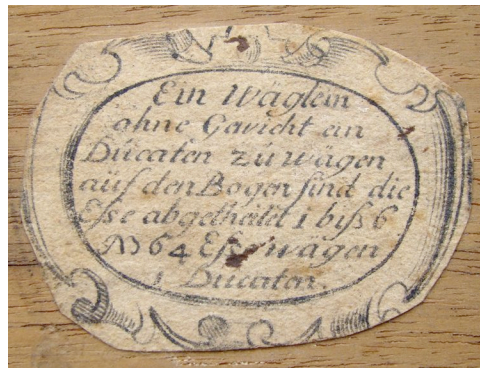 Ein Wäglein
ohne Gavicht ein
Ducaten zu wägen
auf den Bogen sind die
Esse abgetheilet 1 biß 6
NB 64 Esse wägen
1 Ducaten.